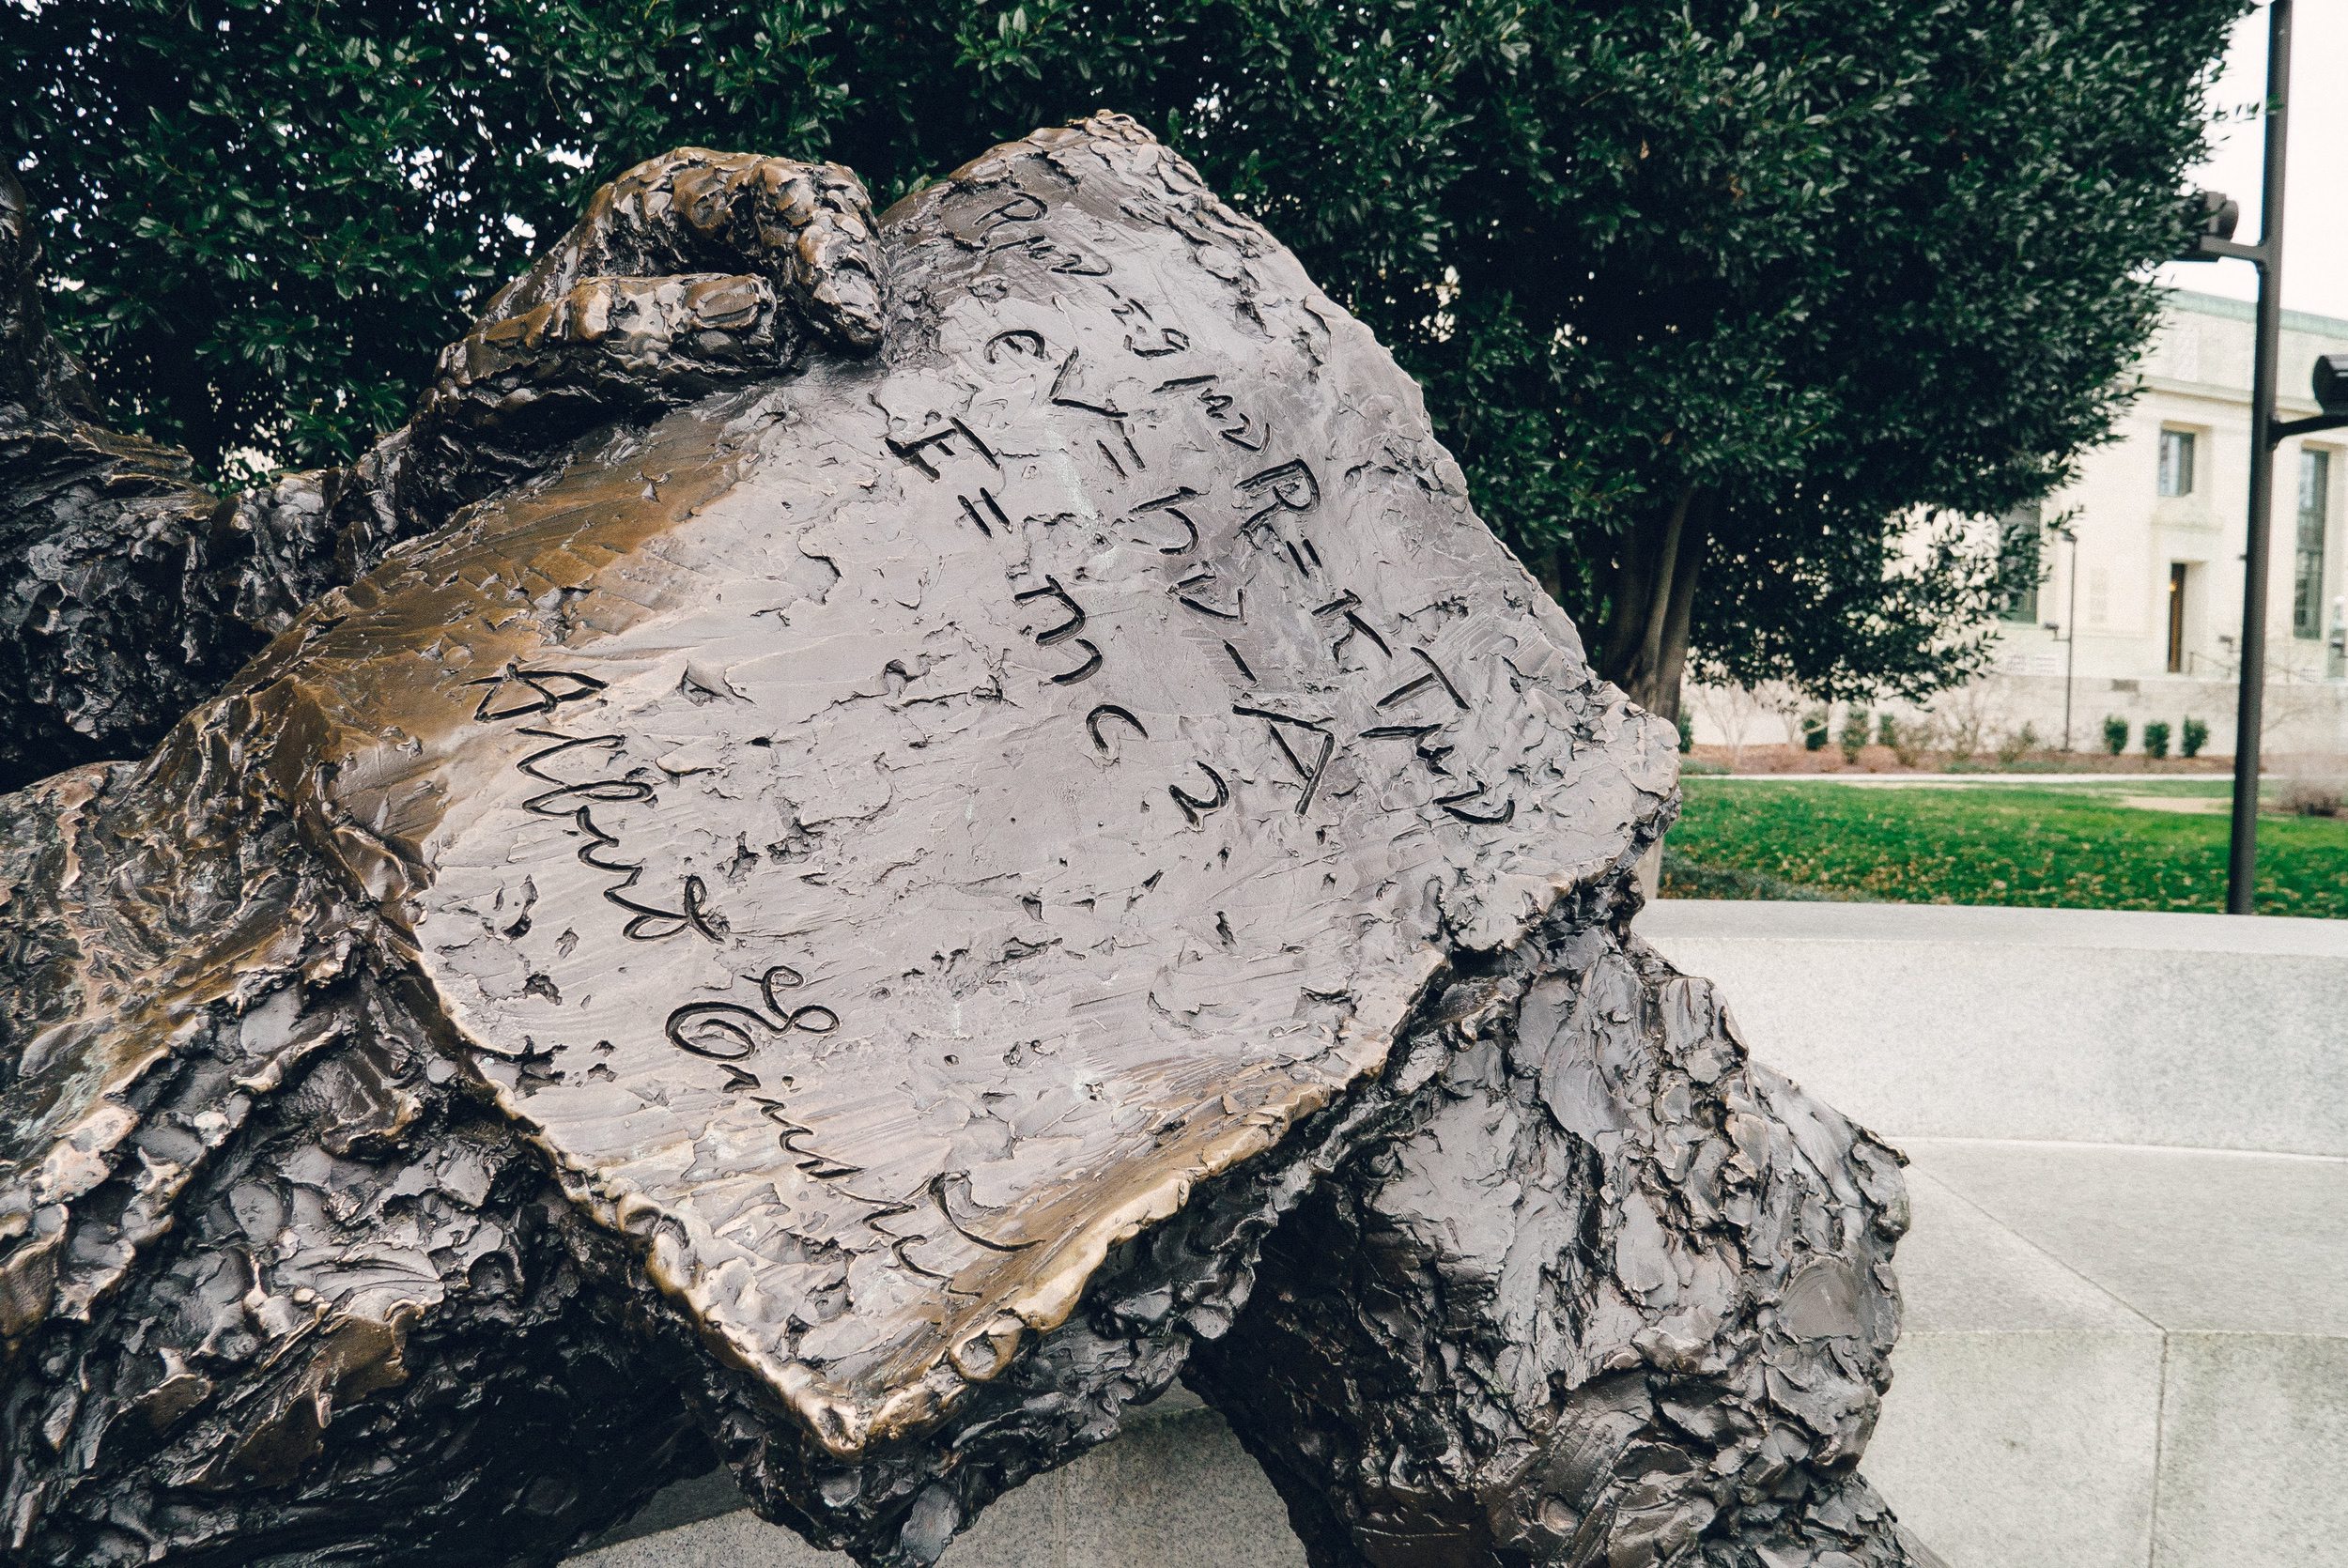 Rμν - ½gμνR = κTμν
eV = hν - A
E = mc²
Albert Einstein